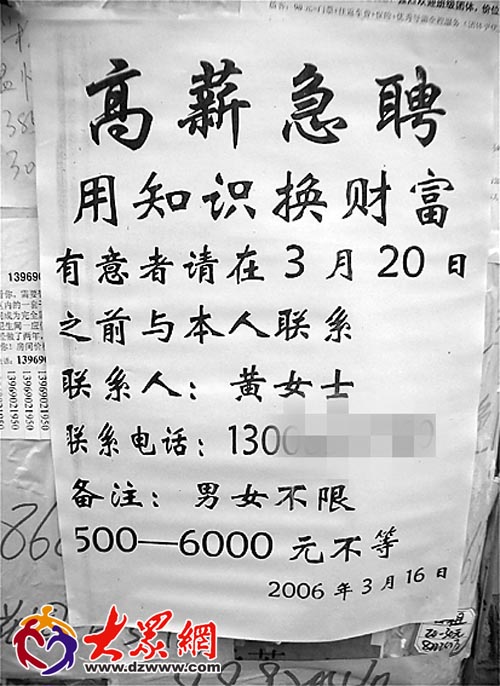 高薪急聘
用知识换财富
有意者请在3月20日
之前与本人联系
联系人：黄女士
联系电话：1300
备注：男女不限
500—6000 元不等
2006 年 3 月 16 日
139690
13969021950
13969021950
13969021950
大众網
www.dzwww.com